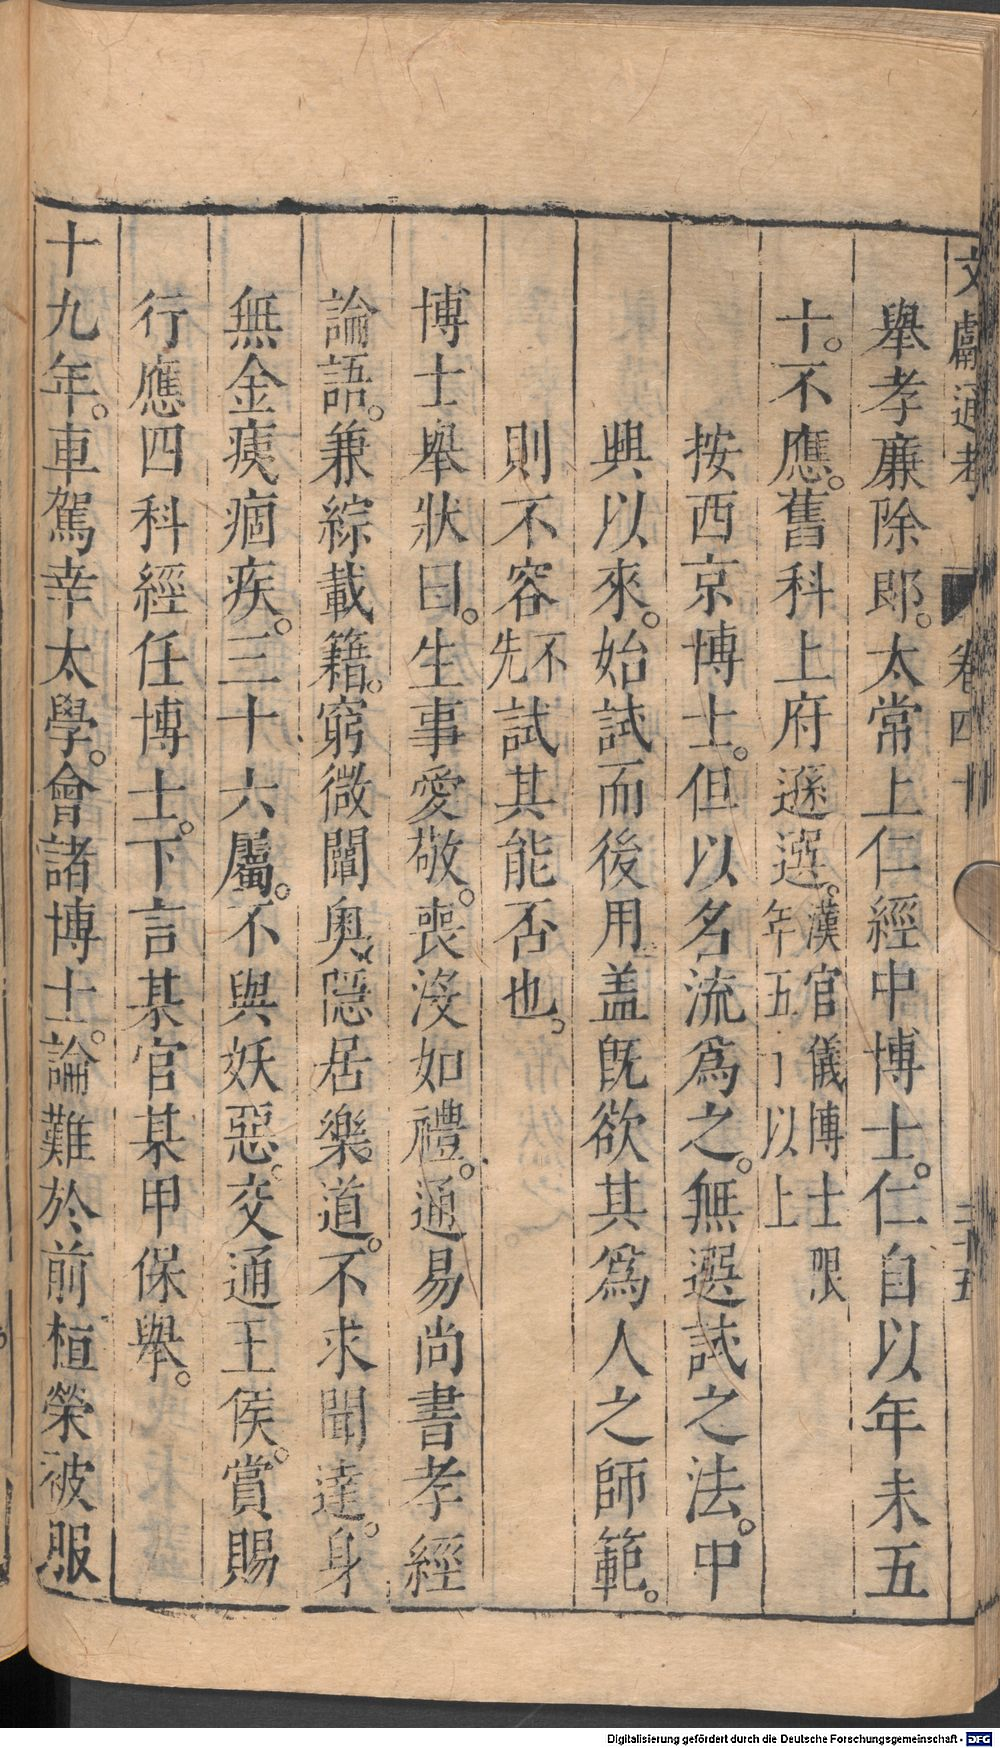 文獻通考 卷四十 二十五
舉孝廉除郎。太常上仁經中博士。仁自以年未五
十。不應。舊科上府遜選。漢官儀博士限年五十以上
按西京博士。但以名流爲之。無選試之法。中
興以來。始試而後用盖旣欲其爲人之師範。
則不容不先試其能否也。
博士舉狀曰。生事愛敬。喪沒如禮。通易尚書孝經
論語。兼綜載籍。窮微闡奧。隱居樂道。不求聞達。身
無金痍痼疾。三十六屬。不與妖惡。交通王侯。賞賜
行應四科經任博士。下言某官某甲保舉。
十九年。車駕幸太學。會諸博士。論難於前桓榮被服
Digitalisierung gefördert durch die Deutsche Forschungsgemeinschaft - DFG